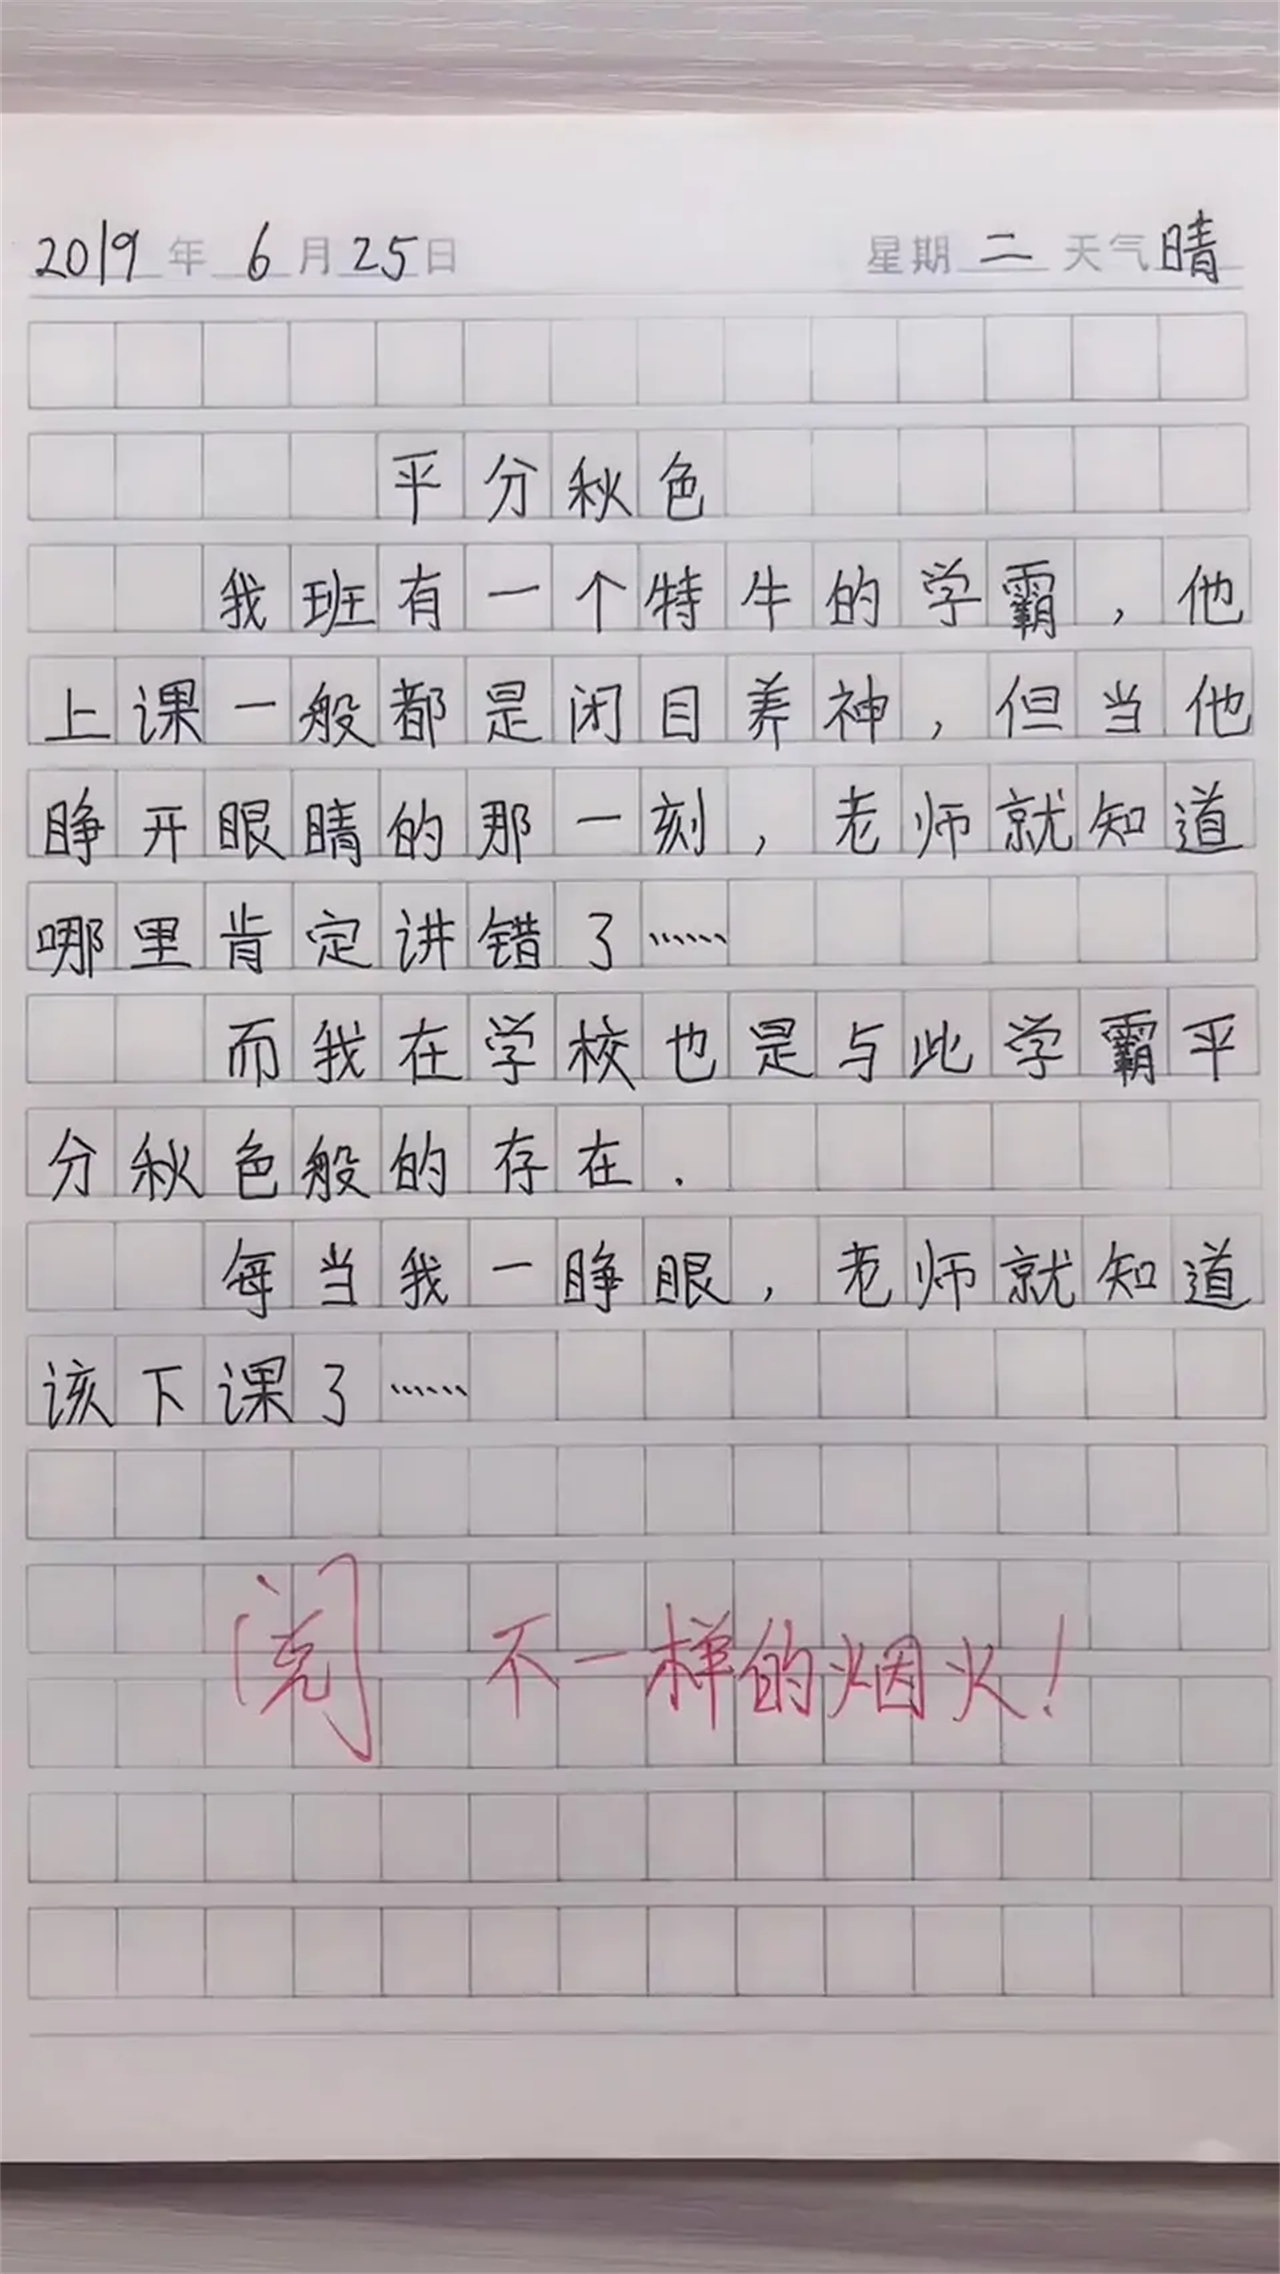 2019年 6月25日 星期二 天气晴
平分秋色
我班有一个特牛的学霸，他
上课一般都是闭目养神，但当他
睁开眼睛的那一刻，老师就知道
哪里肯定讲错了……
而我在学校也是与此学霸平
分秋色般的存在.
每当我一睁眼，老师就知道
该下课了……
阅 不一样的烟火！